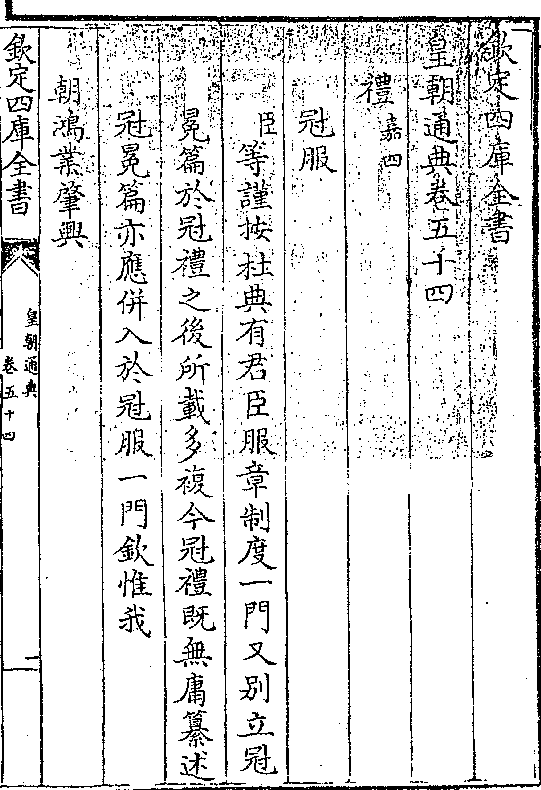 欽定四庫全書
皇朝通典卷五十四
禮嘉四
冠服
臣等謹按杜典有君臣服章制度一門又别立冠
冕篇於冠禮之後所載多複今冠禮既無庸纂述
冠冕篇亦應併入於冠服一門欽惟我
朝鴻業肇興
欽定四庫全書
皇朝通典
卷五十四
一